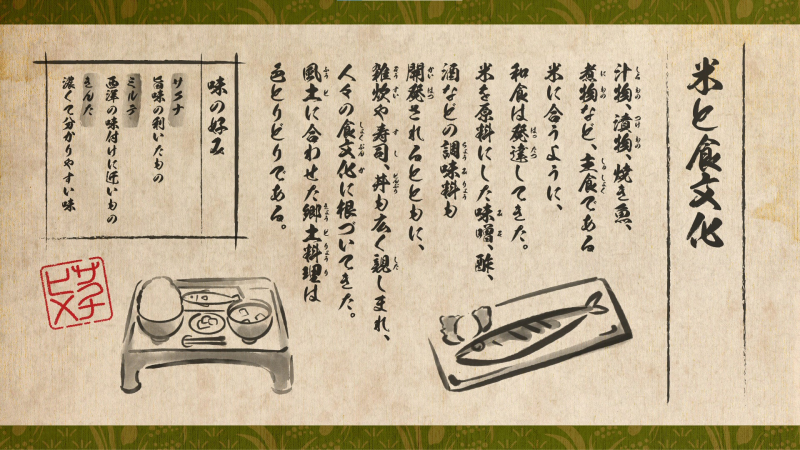 米と食文化
汁物、漬物、焼き魚、
煮物など、主食である
米に合うように、
和食は発達してきた。
米を原料にした味噌、酢、
酒などの調味料も
開発されるとともに、
雑炊や寿司、丼も広く親しまれ、
人々の食文化に根づいてきた。
風土に合わせた郷土料理は
色とりどりである。
味の好み
リエナ
旨味の利いたもの
ミルテ
西洋の味付けに近いもの
きんた
濃くて分かりやすい味
サクナヒメ